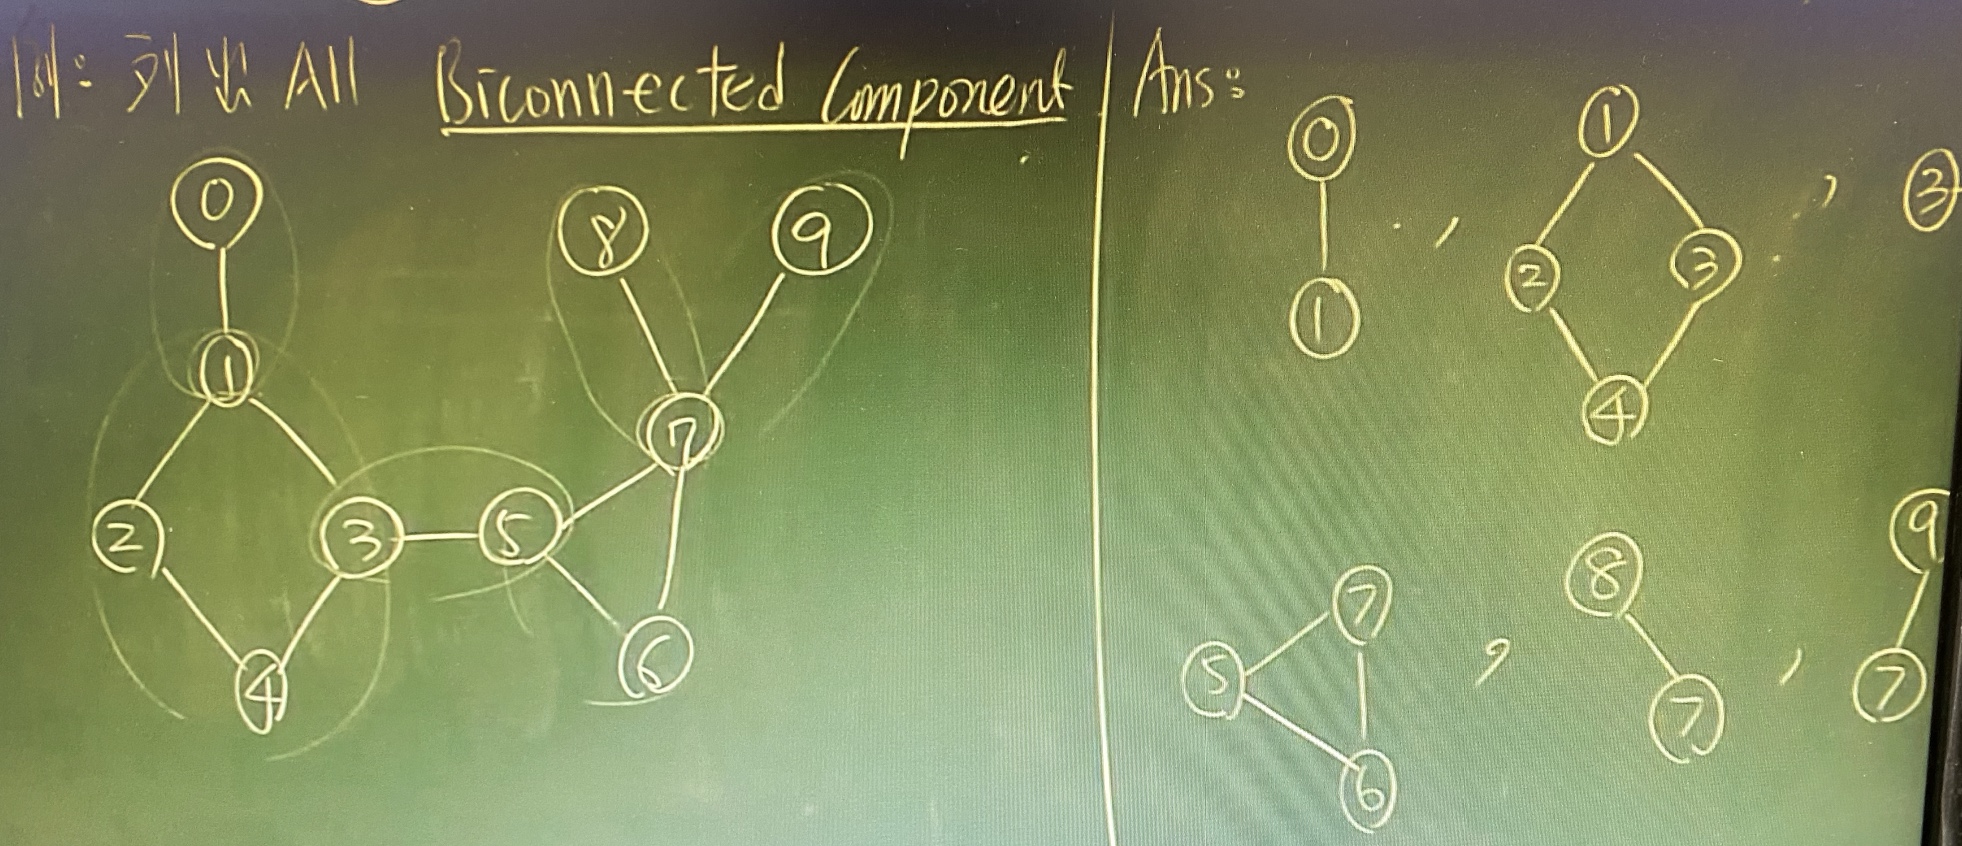 例: 列出 All Biconnected Component
0
8
9
1
7
2
3
5
4
6
Ans:
0
1
,
1
2
3
4
,
3
5
7
6
,
8
7
,
9
7